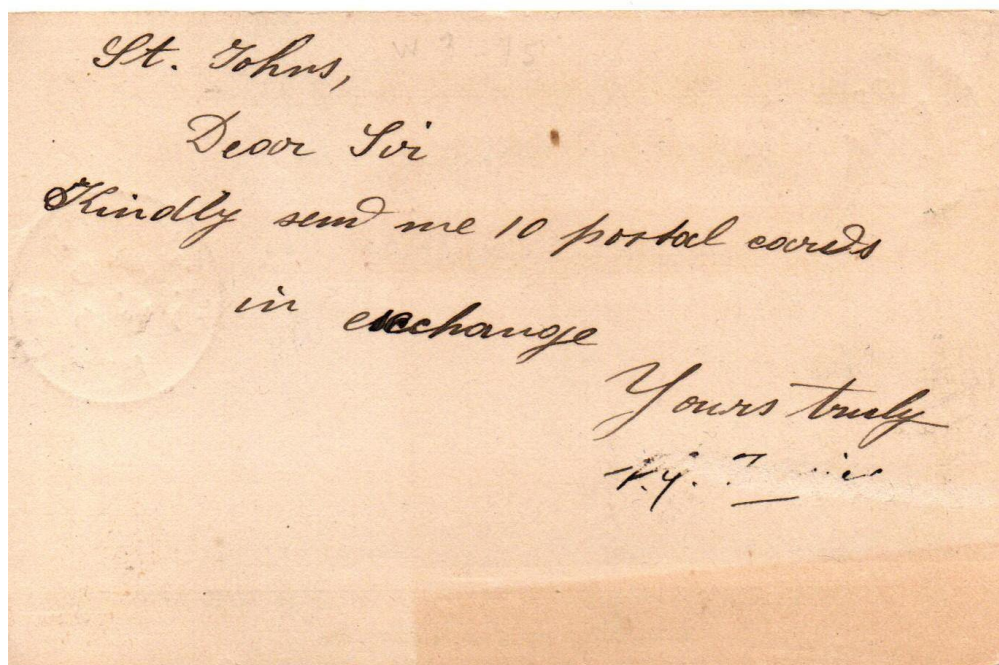 St. Johns,
Dear Sir
Kindly send me 10 postal cards
in exchange
Yours truly